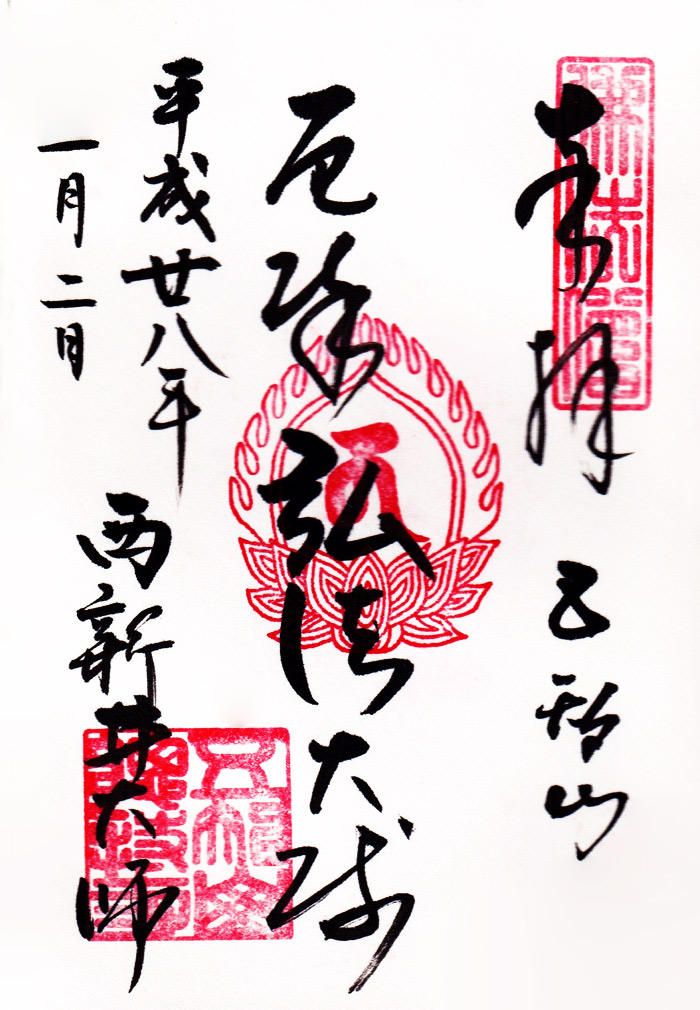 奉拝 五智山
厄除弘法大師
平成廿八年
一月二日
西新井大師